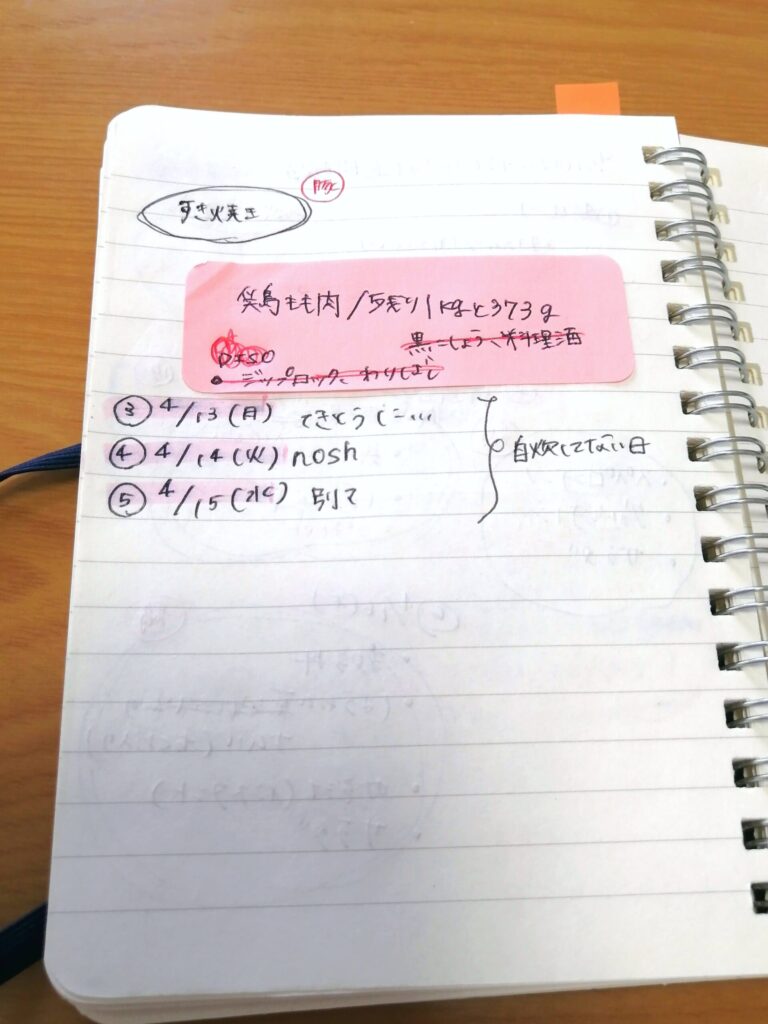 すき焼き
鶏もも肉/残り1kgと373g
黒こしょう、料理酒
DAISO
• ジップロック、わりばし
③ 4/13(月) てきとうに…
④ 4/14(火) nosh
⑤ 4/15(水) 別で
自炊してない日